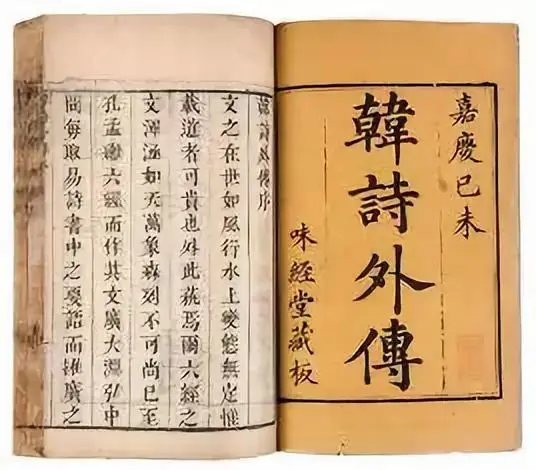 嘉慶己未
韓詩外傳
味經堂藏板
韓詩外傳序
文之在世如風行水上變態無定惟
載道者可貴也外此蔑焉爾六經之
文渾涵如天萬象森列不可尚已至
孔孟六經而作其文廣大淵弘中
間每取易詩書中之要語而推廣之